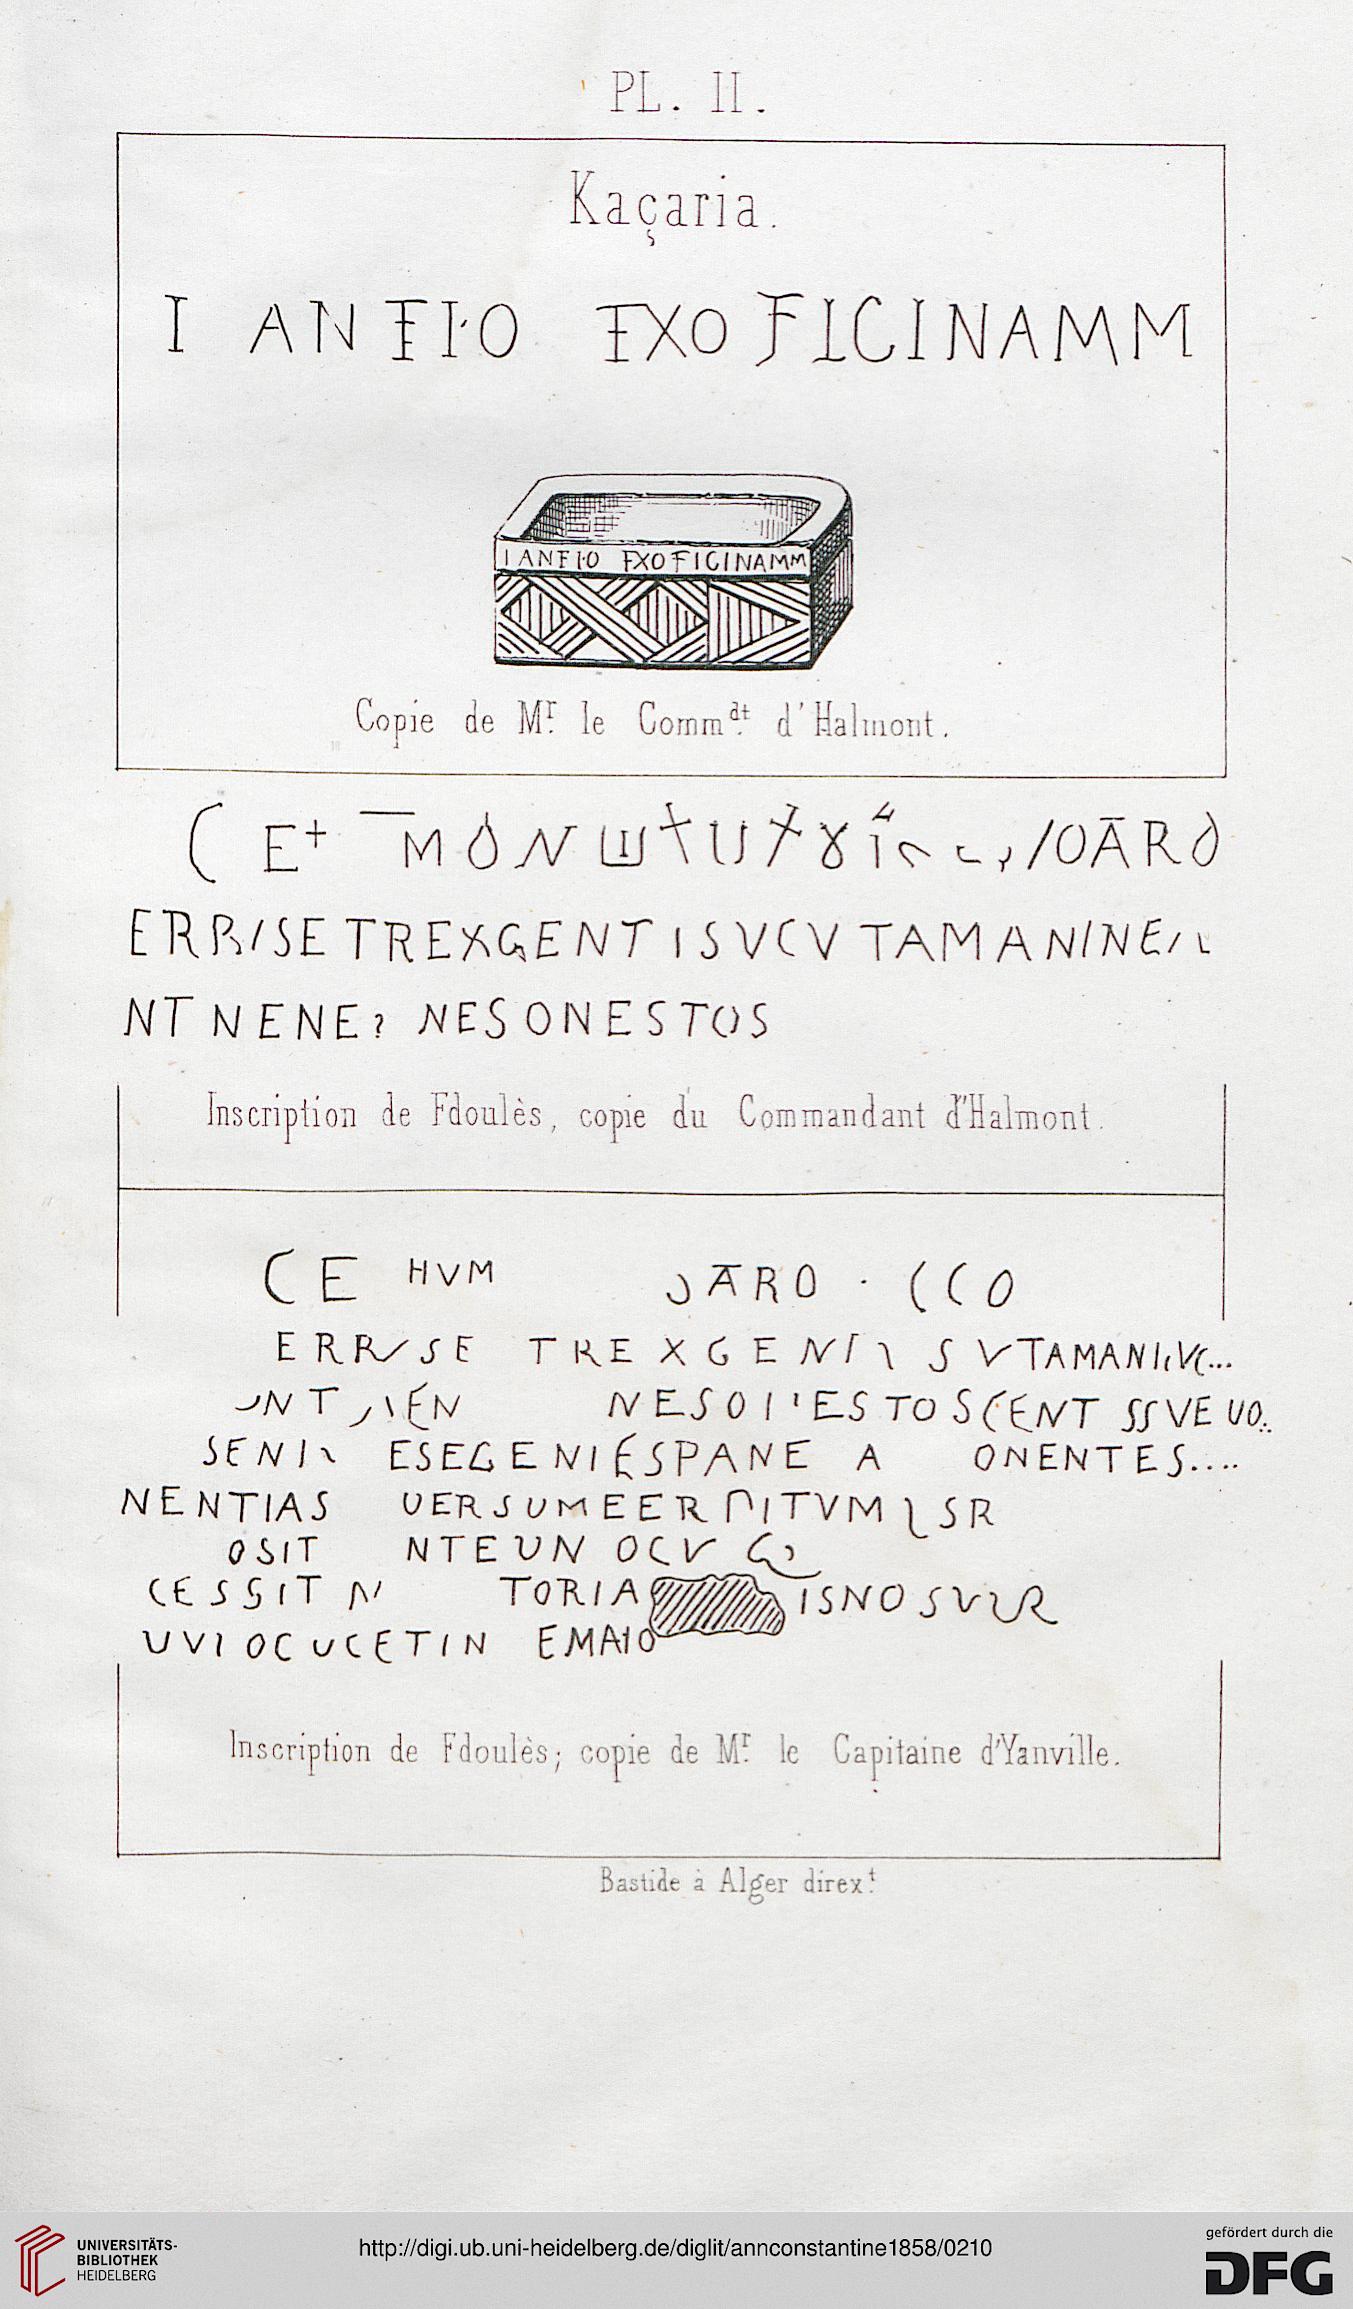 PL. II.
Kaçaria.
I ANFI·O EXOFICINAMM
I ANFI·O FXOFICINAMM
Copie de Mr. le Commdt. d'Halmont.
ERRISETREXGENTISVCVTAMANINE
NT NENE? NESONESTOS
Inscription de Fdoulès, copie du Commandant d'Halmont.
CE HVM ARO · CCO
ERRSE TREXGEN SVTAMANI
NT EN NESOI'ESTOSCENT SSVEUO..
SENI ESEGENIESPANE A ONENTES....
NENTIAS UERSUMEER ITVM SR
OSIT NTEUN OCV
CESSIT N TORIA ISNOSV
UVIOCUCETIN EMAIO
Inscription de Fdoulès; copie de Mr. le Capitaine d'Yanville.
Bastide à Alger direx.t
UNIVERSITÄTS-
BIBLIOTHEK
HEIDELBERG
http://digi.ub.uni-heidelberg.de/diglit/annconstantine1858/0210
gefördert durch die
DFG